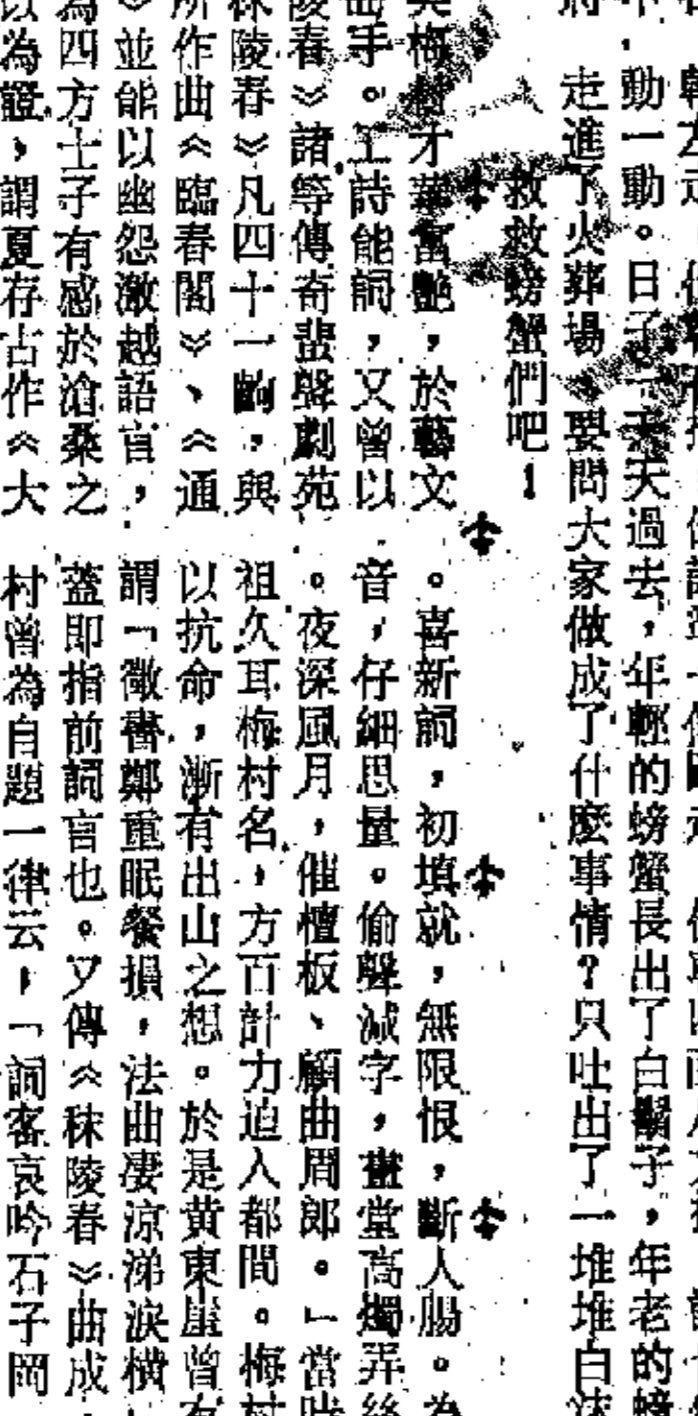 動一動。日子一天天過去，年輕的螃蟹長出了白鬍子，年老的螃
走進了火葬場。要問大家做成了什麼事情？只吐出了一堆堆白沫
救救螃蟹們吧！
梅村才華富艷，於藝文
曲手。工詩能詞，又曾以
陵春》諸等傳奇蜚聲劇苑
秣陵春》凡四十一齣，與
所作曲《臨春閣》、《通
》並能以幽怨激越語言，
為四方士子有感於滄桑之
以為證，謂夏存古作《大
。喜新詞，初填就，無限恨，斷人腸。為
音，仔細思量。偷聲減字，畫堂高燭弄絲
。夜深風月，催檀板、顧曲周郎。」當時
祖久耳梅村名，方百計力迫入都間。梅村
以抗命，漸有出山之想。於是黃東崖曾有
謂「徵書鄭重眠餐損，法曲淒涼涕淚橫
蓋即指前詞言也。又傳《秣陵春》曲成
村曾為自題一律云，「詞客哀吟石子岡